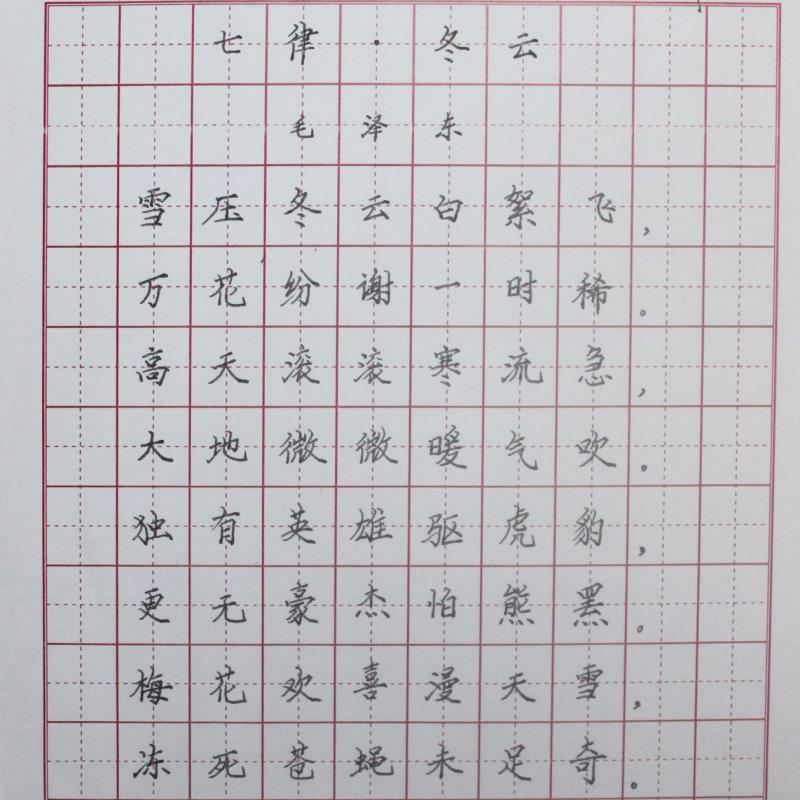 七律·冬云
毛泽东
雪压冬云白絮飞，
万花纷谢一时稀。
高天滚滚寒流急，
大地微微暖气吹。
独有英雄驱虎豹，
更无豪杰怕熊罴。
梅花欢喜漫天雪，
冻死苍蝇未足奇。